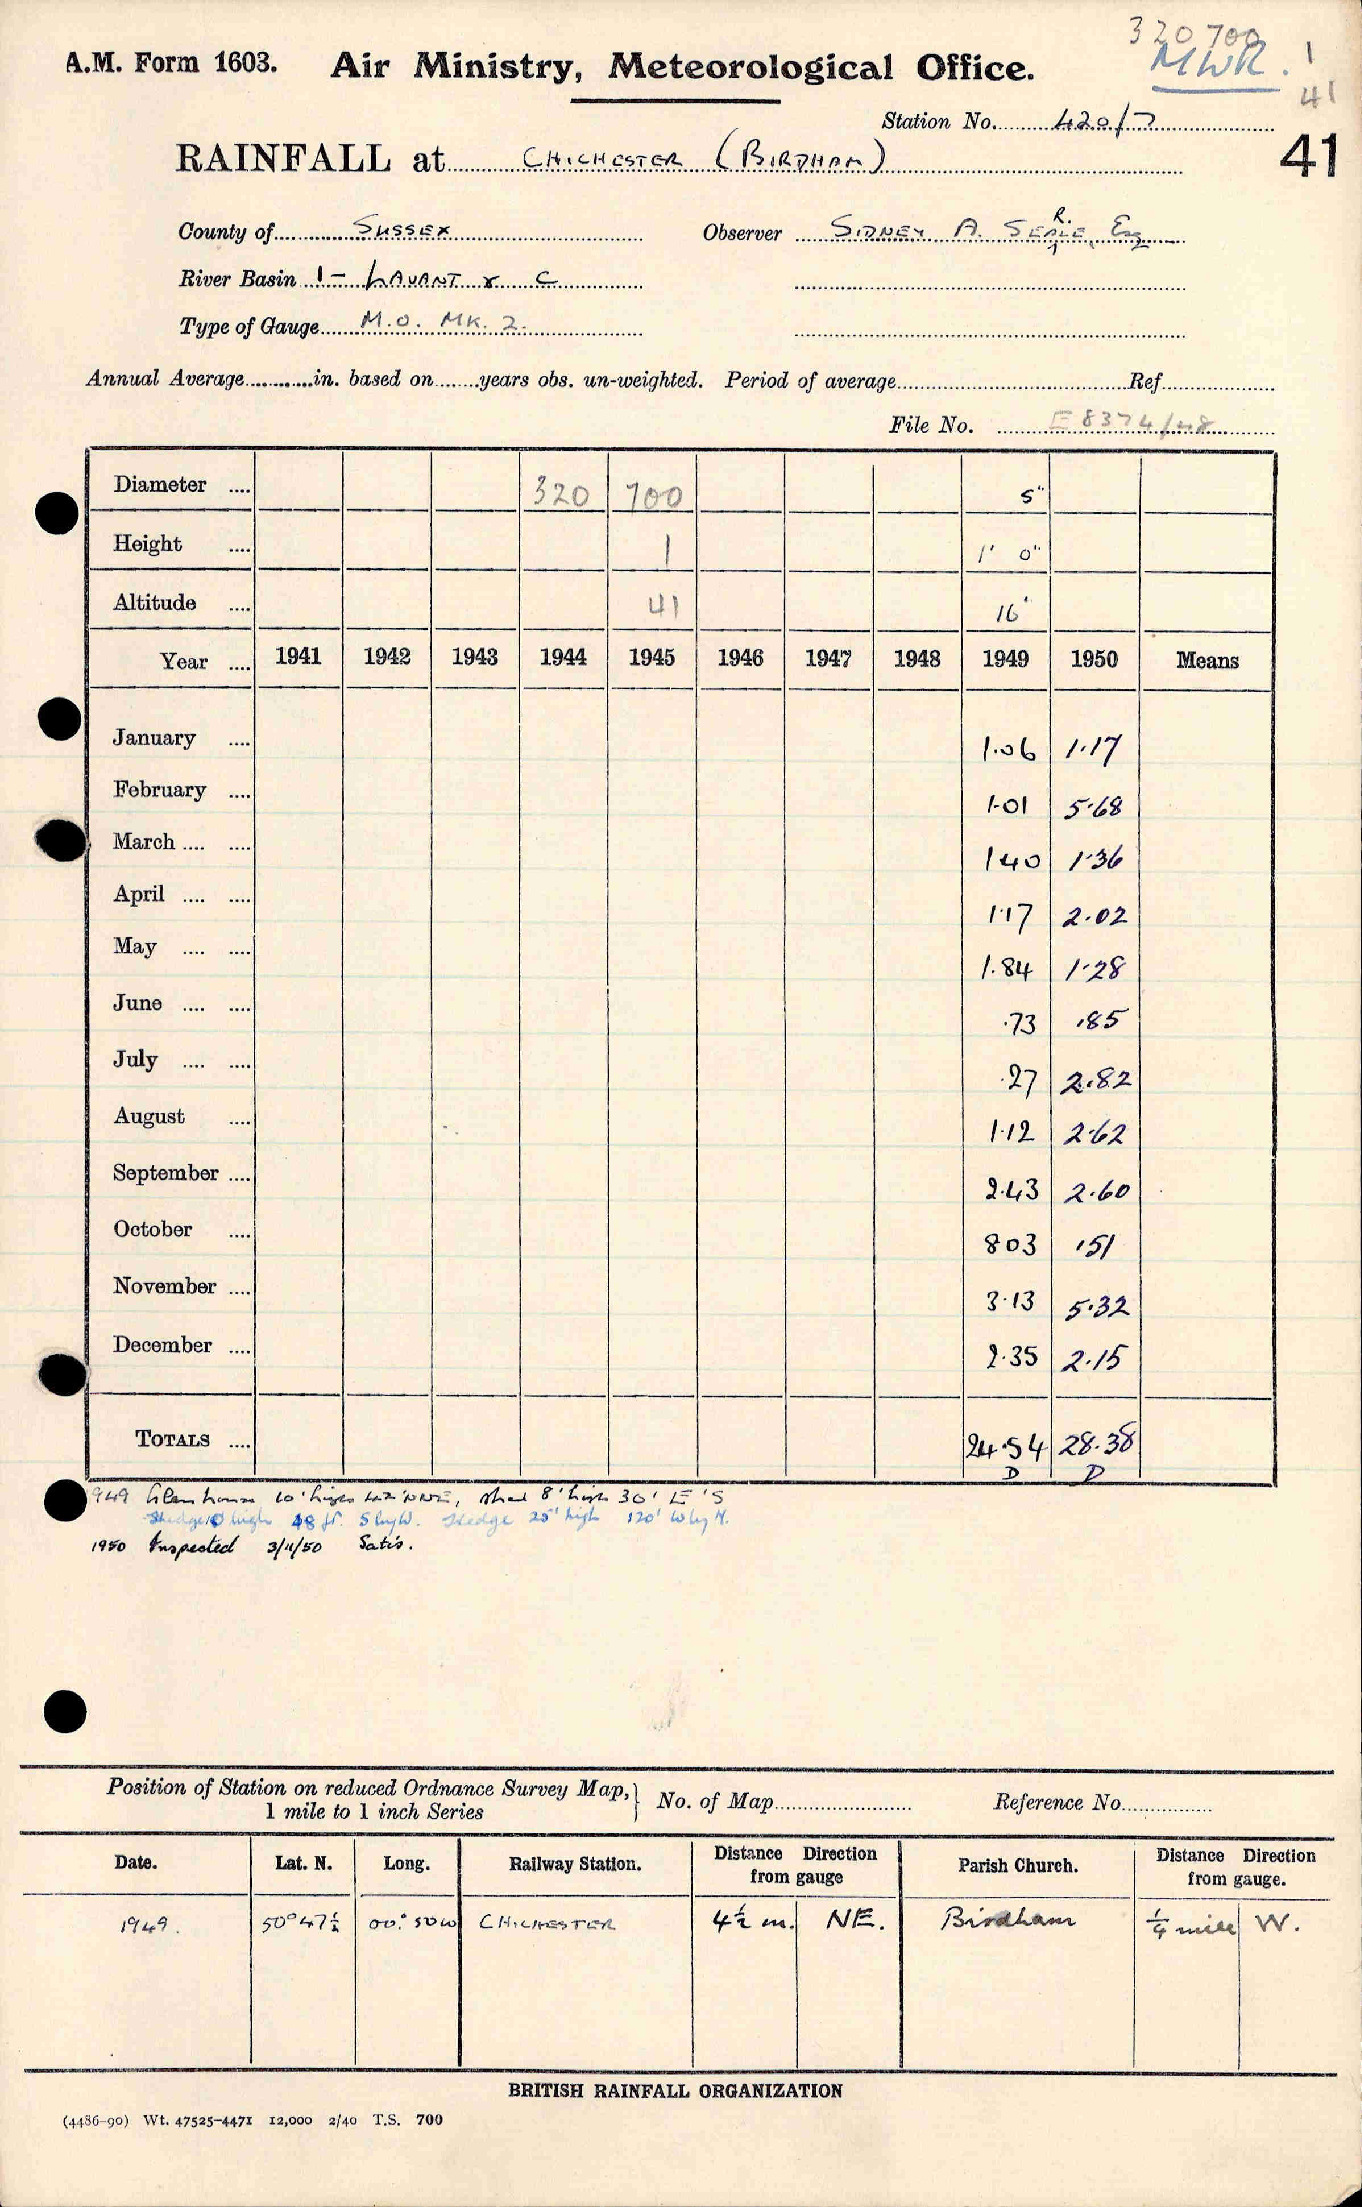 320 700
A.M. Form 1603. Air Ministry, Meteorological Office. MWR. 1
41
Station No. 420/7
RAINFALL at CHICHESTER (BIRDHAM) 41
County of SUSSEX Observer SIDNEY A. SEARLE, Esq
River Basin 1 - LAVANT & C
Type of Gauge M.O. MK. 2.
Annual Average in. based on years obs. un-weighted. Period of average Ref
File No. E 8374/48
Diameter .... 320 700 5"
Height .... 1 1' 0"
Altitude .... 41 16'
Year .... 1941 1942 1943 1944 1945 1946 1947 1948 1949 1950 Means
January .... 1.06 1.17
February .... 1.01 5.68
March .... .... 1 40 1.36
April .... .... 1.17 2.02
May .... .... 1.84 1.28
June .... .... .73 .85
July .... .... .27 2.82
August .... 1.12 2.62
September .... 2.43 2.60
October .... 8 03 .51
November .... 3.13 5.32
December .... 2.35 2.15
TOTALS .... 24.54 28.38
D D
1949 10' high NNE, shed 8' high 30' E'S
high 48 ft. S by W. Hedge 25' high 120' W by N.
1950 Inspected 3/11/50 Satis.
Position of Station on reduced Ordnance Survey Map, 1 mile to 1 inch Series } No. of Map Reference No.
Date. Lat. N. Long. Railway Station. Distance Direction from gauge Parish Church. Distance Direction from gauge.
1949. 50° 47½ 00° 50W CHICHESTER 4½ m. NE. Birdham ¼ mile W.
BRITISH RAINFALL ORGANIZATION
(4486-90) Wt. 47525-4471 12,000 2/40 T.S. 700